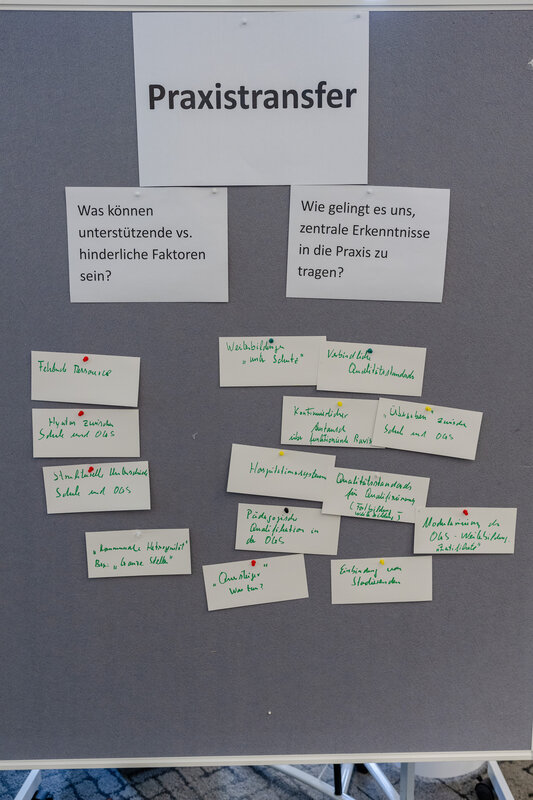 Praxistransfer
Was können
unterstützende vs.
hinderliche Faktoren
sein?
Wie gelingt es uns,
zentrale Erkenntnisse
in die Praxis zu
tragen?
Fehlende Ressource
zwischen
Schule und OGS
Strukturelle Unterschiede
Schule und OGS
„Kommunale Heterogenität"
Bsp. „Ganze Stelle"
Weiterbildungen
Schutz"
Verbindliche
Qualitätsstandards
Kontinuierlicher
Austausch
über funktionierende Praxis
zwischen
Schule und OGS
Hospitationssystem
Qualitätsstandards
für Qualifizierung
(Fortbildung
Pädagogische
Qualifikation in
der OGS
Modularisierung der
OGS-Weiterbildung
„Quereinsteiger"
Was tun?
Einbindung von
Studierenden